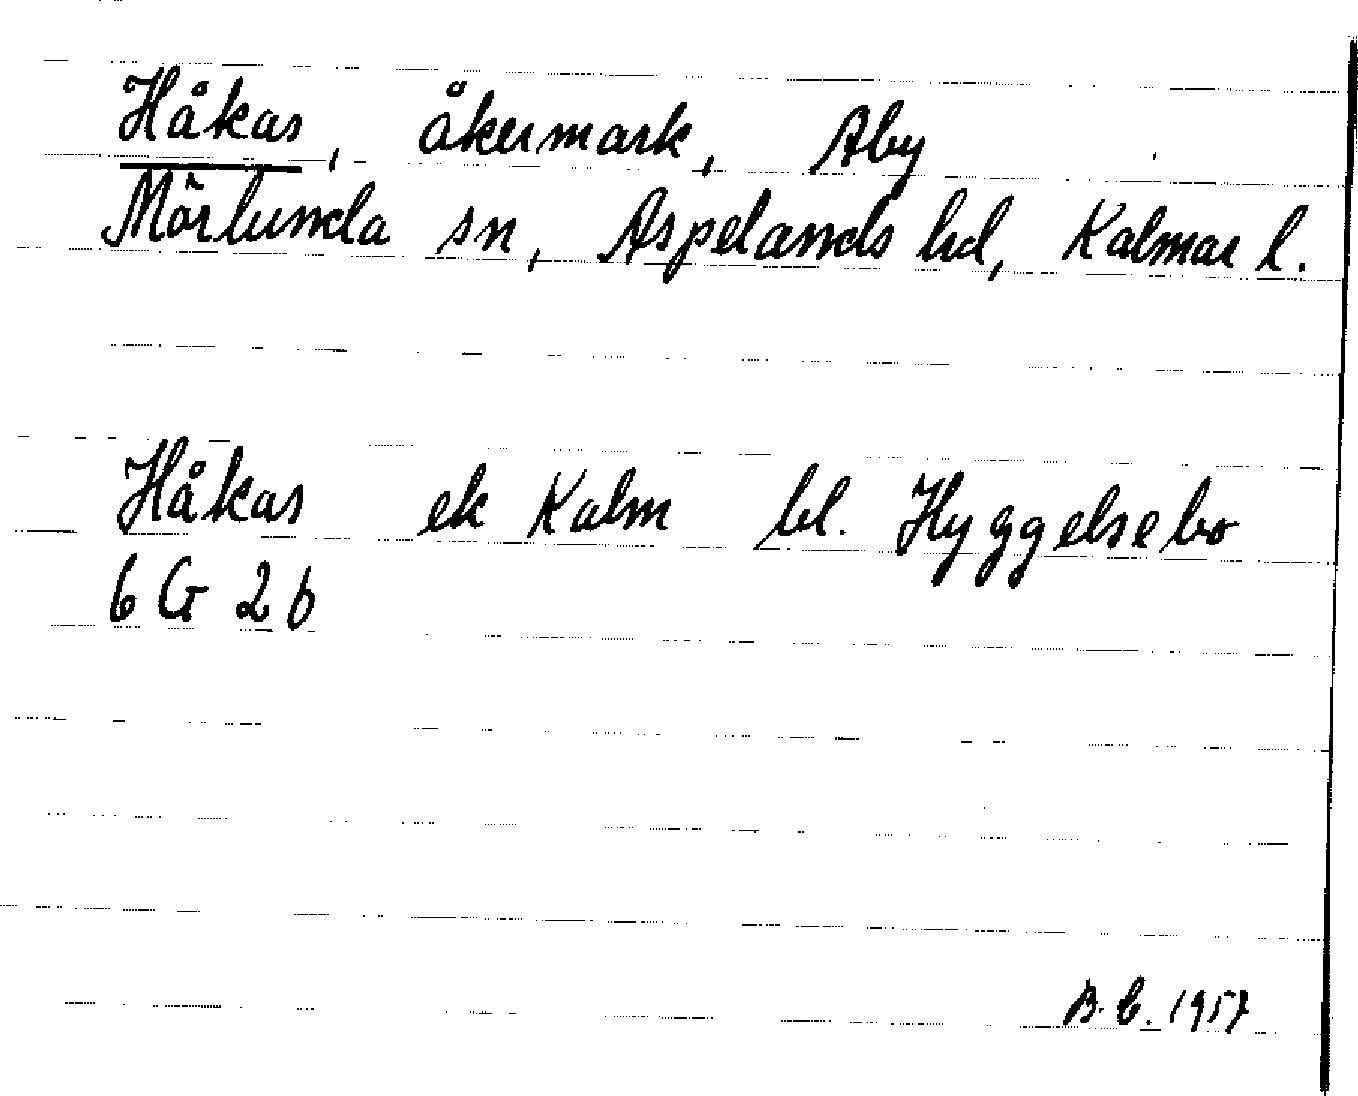 Håkas, åkermark, Aby
Mörlunda sn, Aspelands hd, Kalmar l.
Håkas ek Kalm bl. Hyggelsebo
6 G 2 b
B. C. 1957